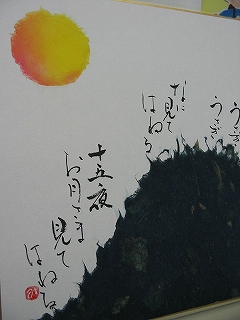 うさぎ
うさぎ
なに見て
はねる
十五夜
お月さま
見て
はねる